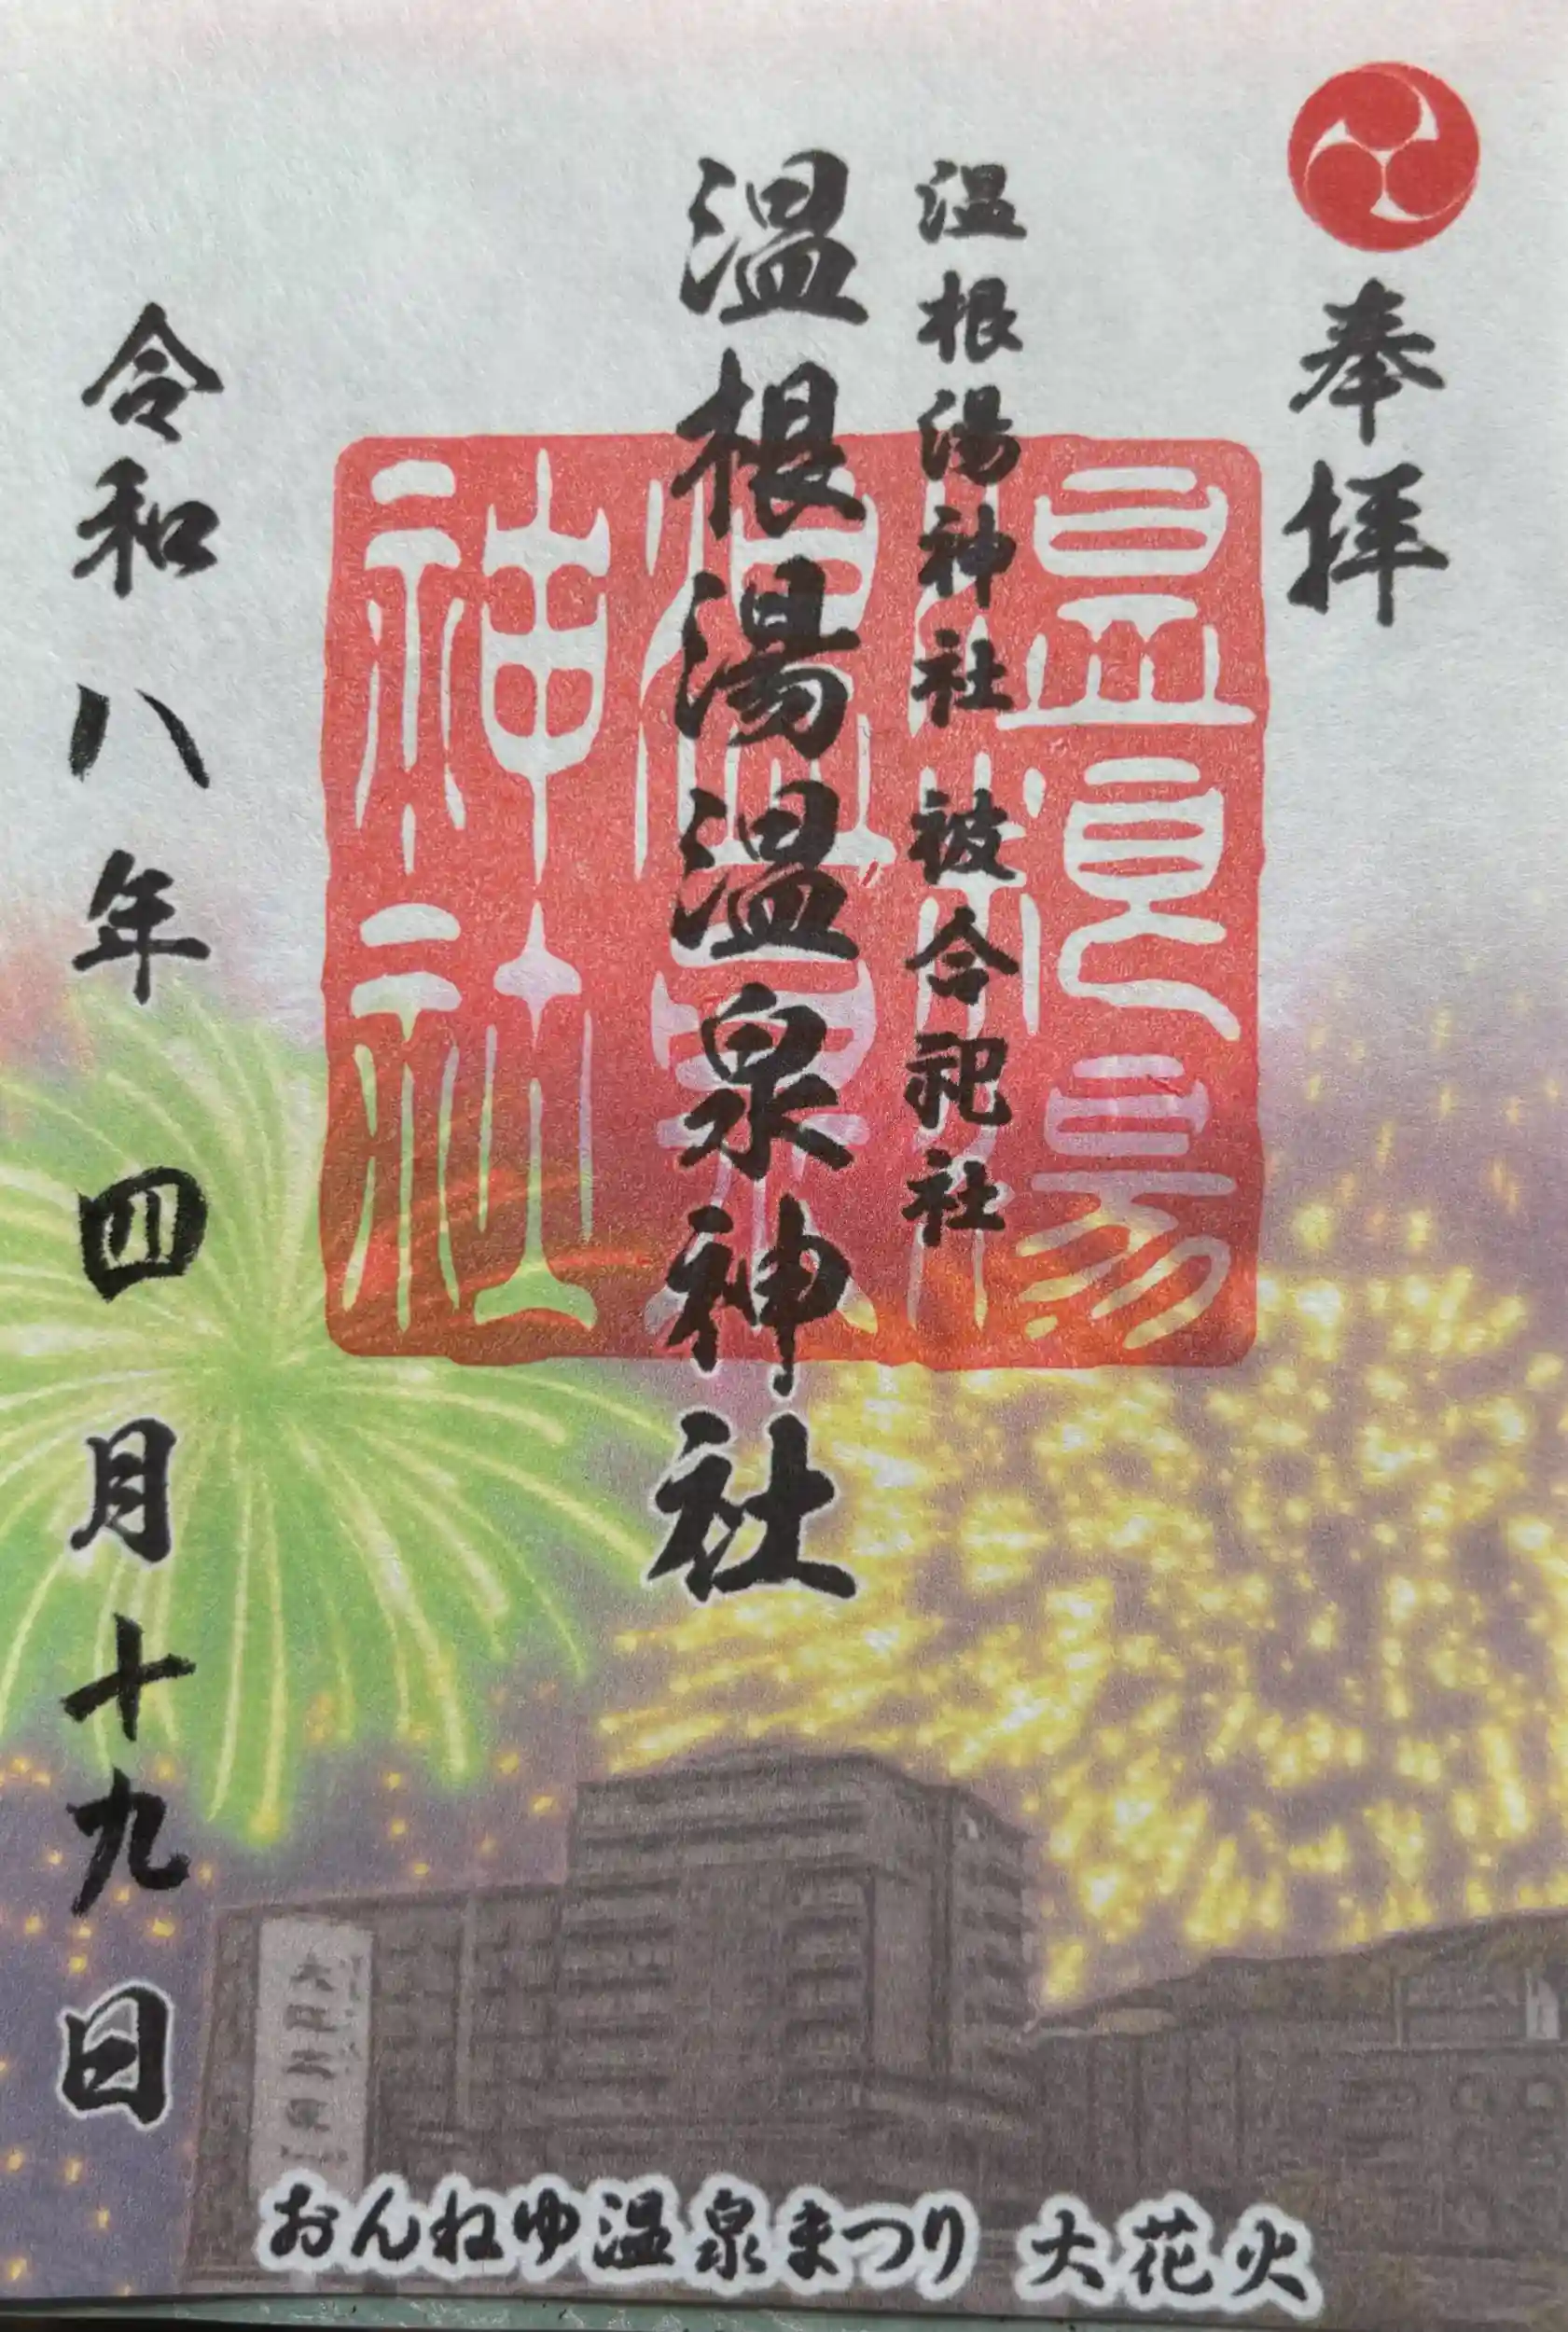 奉拝
温根湯神社 被合祀社
温根湯温泉神社
温根湯温泉神社
令和八年四月十九日
おんねゆ温泉まつり 大花火